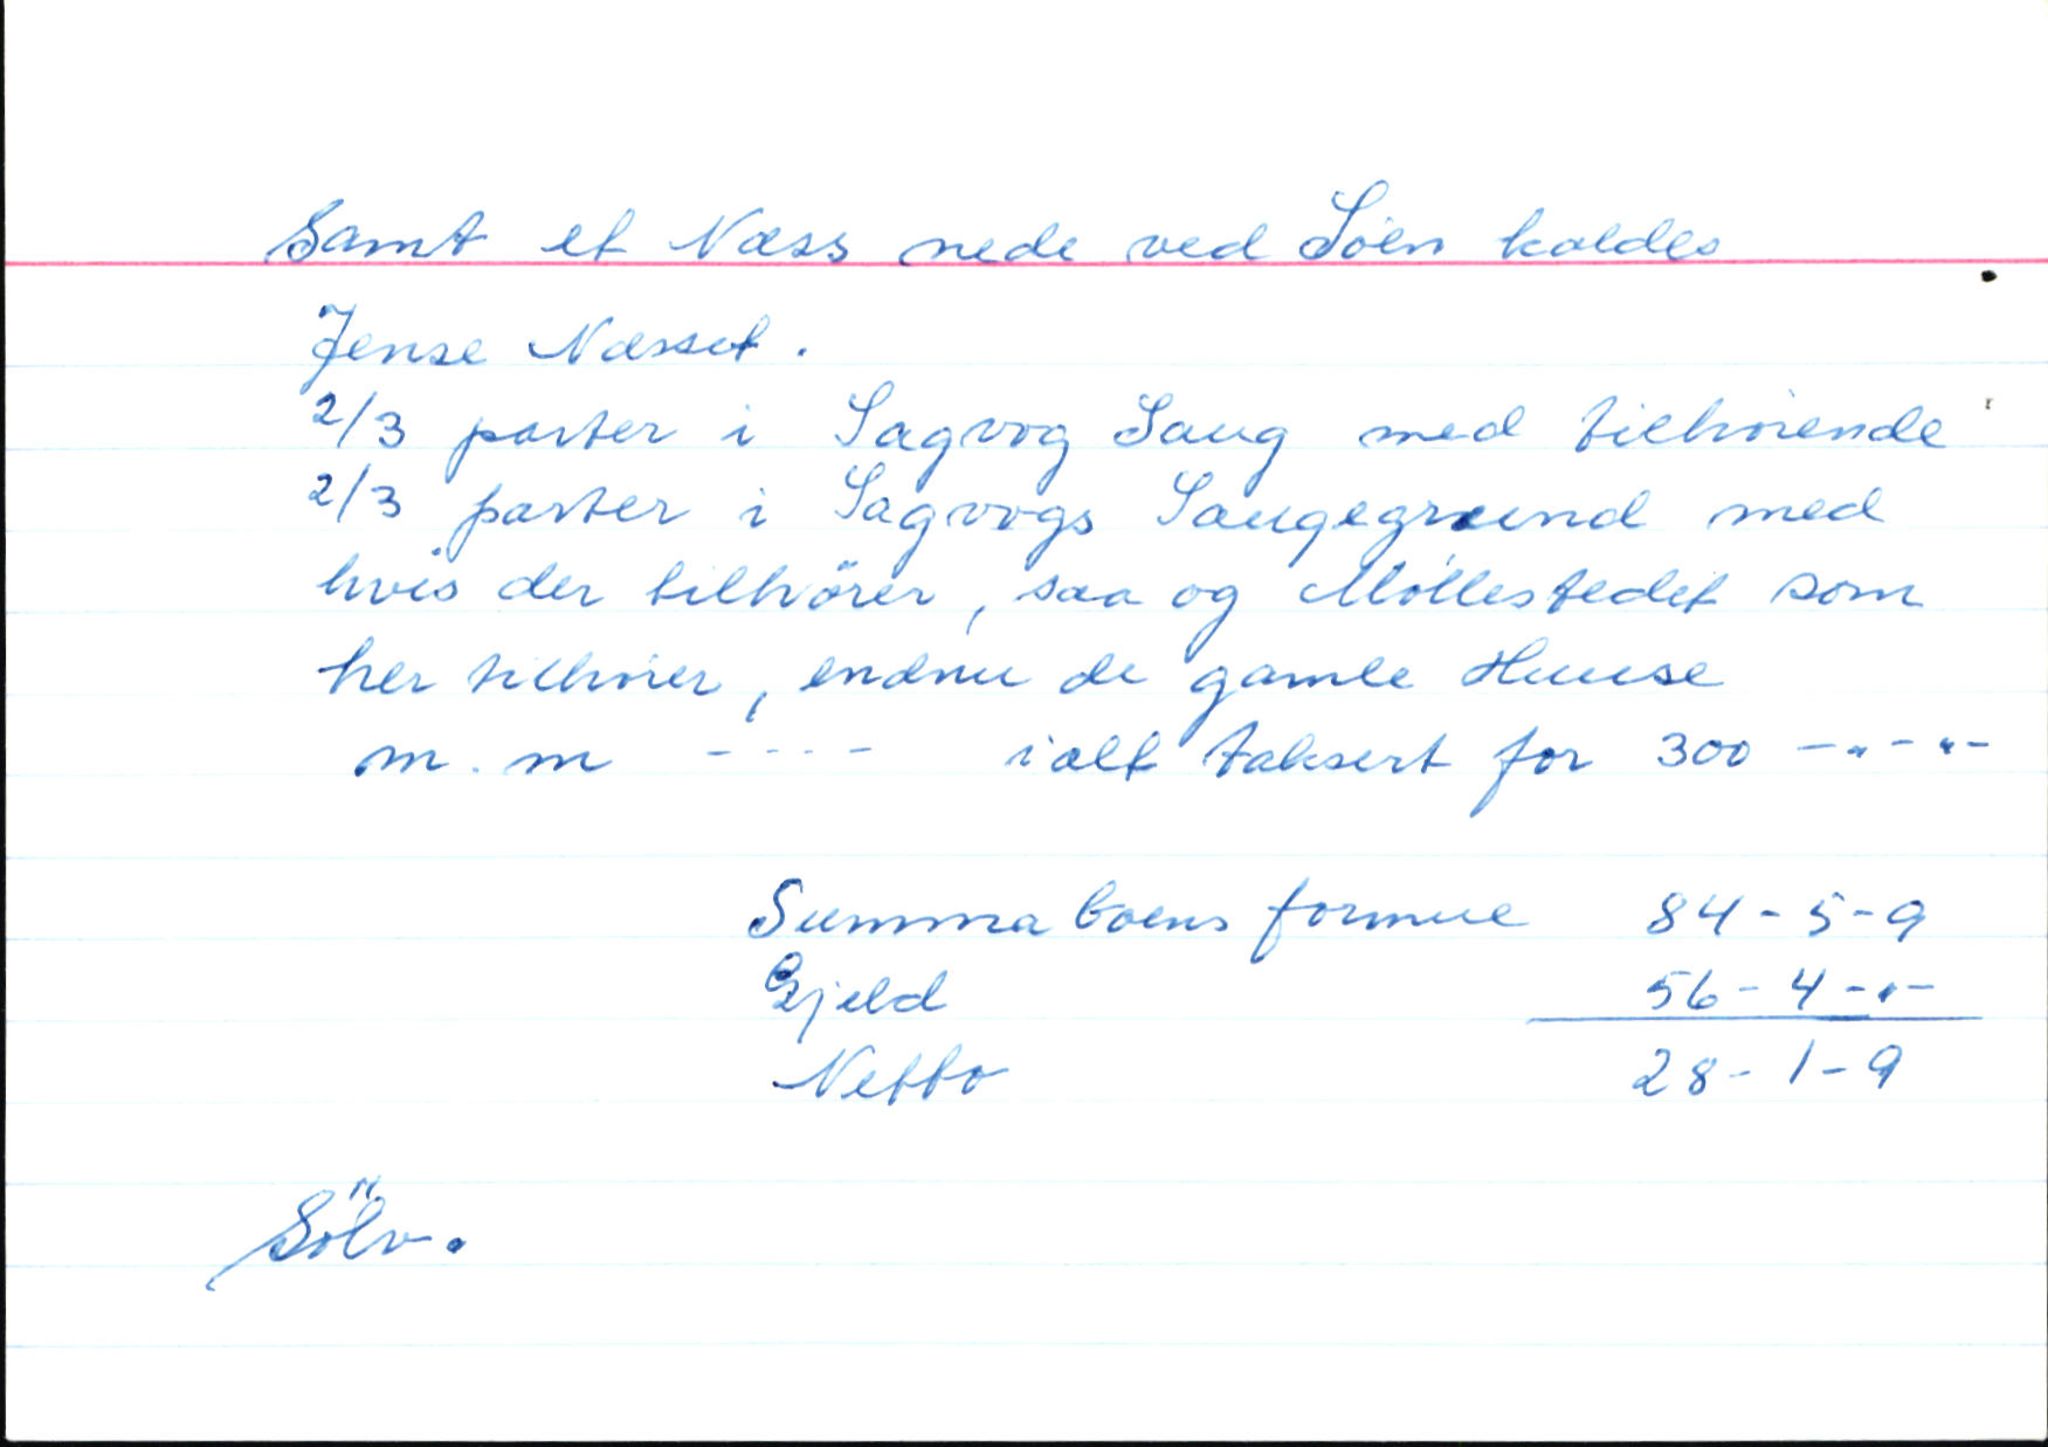 Samt et Næss nede ved Söen kaldes
Jense Næsset.
2/3 parter i Sagvog Saug med tilhörende
2/3 parter i Sagvogs Saugegrund med
hvis der tilhörer, saa og Möllestedet som
her tilhörer, endnu de gamle Huuse
m.m ---- ialt taksert for 300 -"-"-
Summa boens formue 84-5-9
Gjeld 56-4-"-
Netto 28-1-9
Sölv.